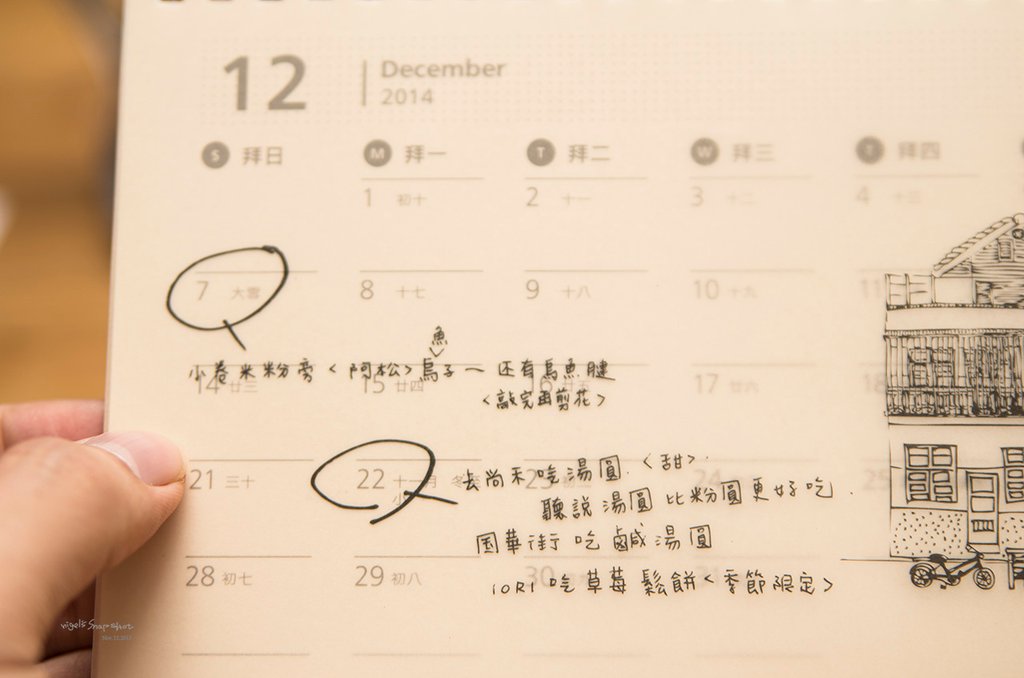 12
December
2014
S 拜日 M 拜一 T 拜二 W 拜三 T 拜四
1 初十 2 十一 3 十二 4 十三
7 大雪 8 十七 9 十八 10 十九 11
魚
小卷米粉 <阿松> 烏子一 还有烏魚腱
14 廿三 15 廿四 16 廿五 17 廿六 18
<敲完再剪花>
21 三十 22 十一月 冬 23 24 25
去尚禾吃湯圓. <甜>.
聽說湯圓比粉圓更好吃.
国華街吃鹹湯圓
28 初七 29 初八 30 31
iORi 吃草莓鬆餅<季節限定>
nigel's Snapshot